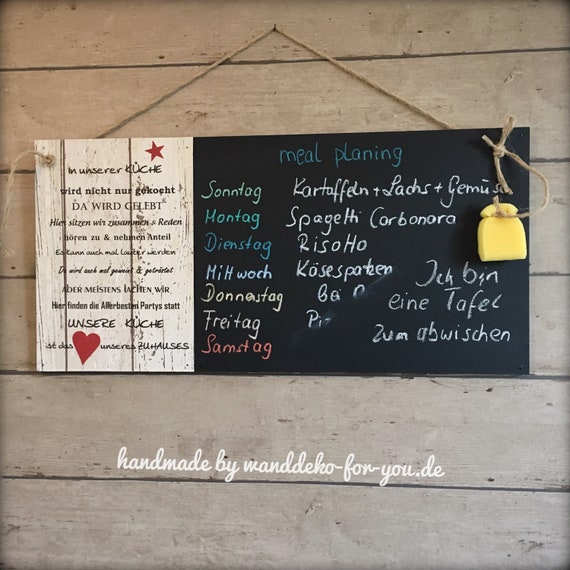 In unserer KÜCHE
wird nicht nur gekocht
DA WIRD GELEBT
Hier sitzen wir zusammen & Reden
hören zu & nehmen Anteil
Es kann auch mal lauter werden
Da wird auch mal geweint & getröstet
ABER MEISTENS LACHEN WIR
Hier finden die Allerbesten Partys statt
UNSERE KÜCHE
ist das unseres ZUHAUSES
meal planing
Sonntag Kartoffeln + Lachs + Gemüse
Montag Spagetti Carbonara
Dienstag Risotto
Mittwoch Käsespatzen
Donnerstag bei
Freitag
Samstag
Ich bin
eine Tafel
zum abwischen
handmade by wanddeko-for-you.de